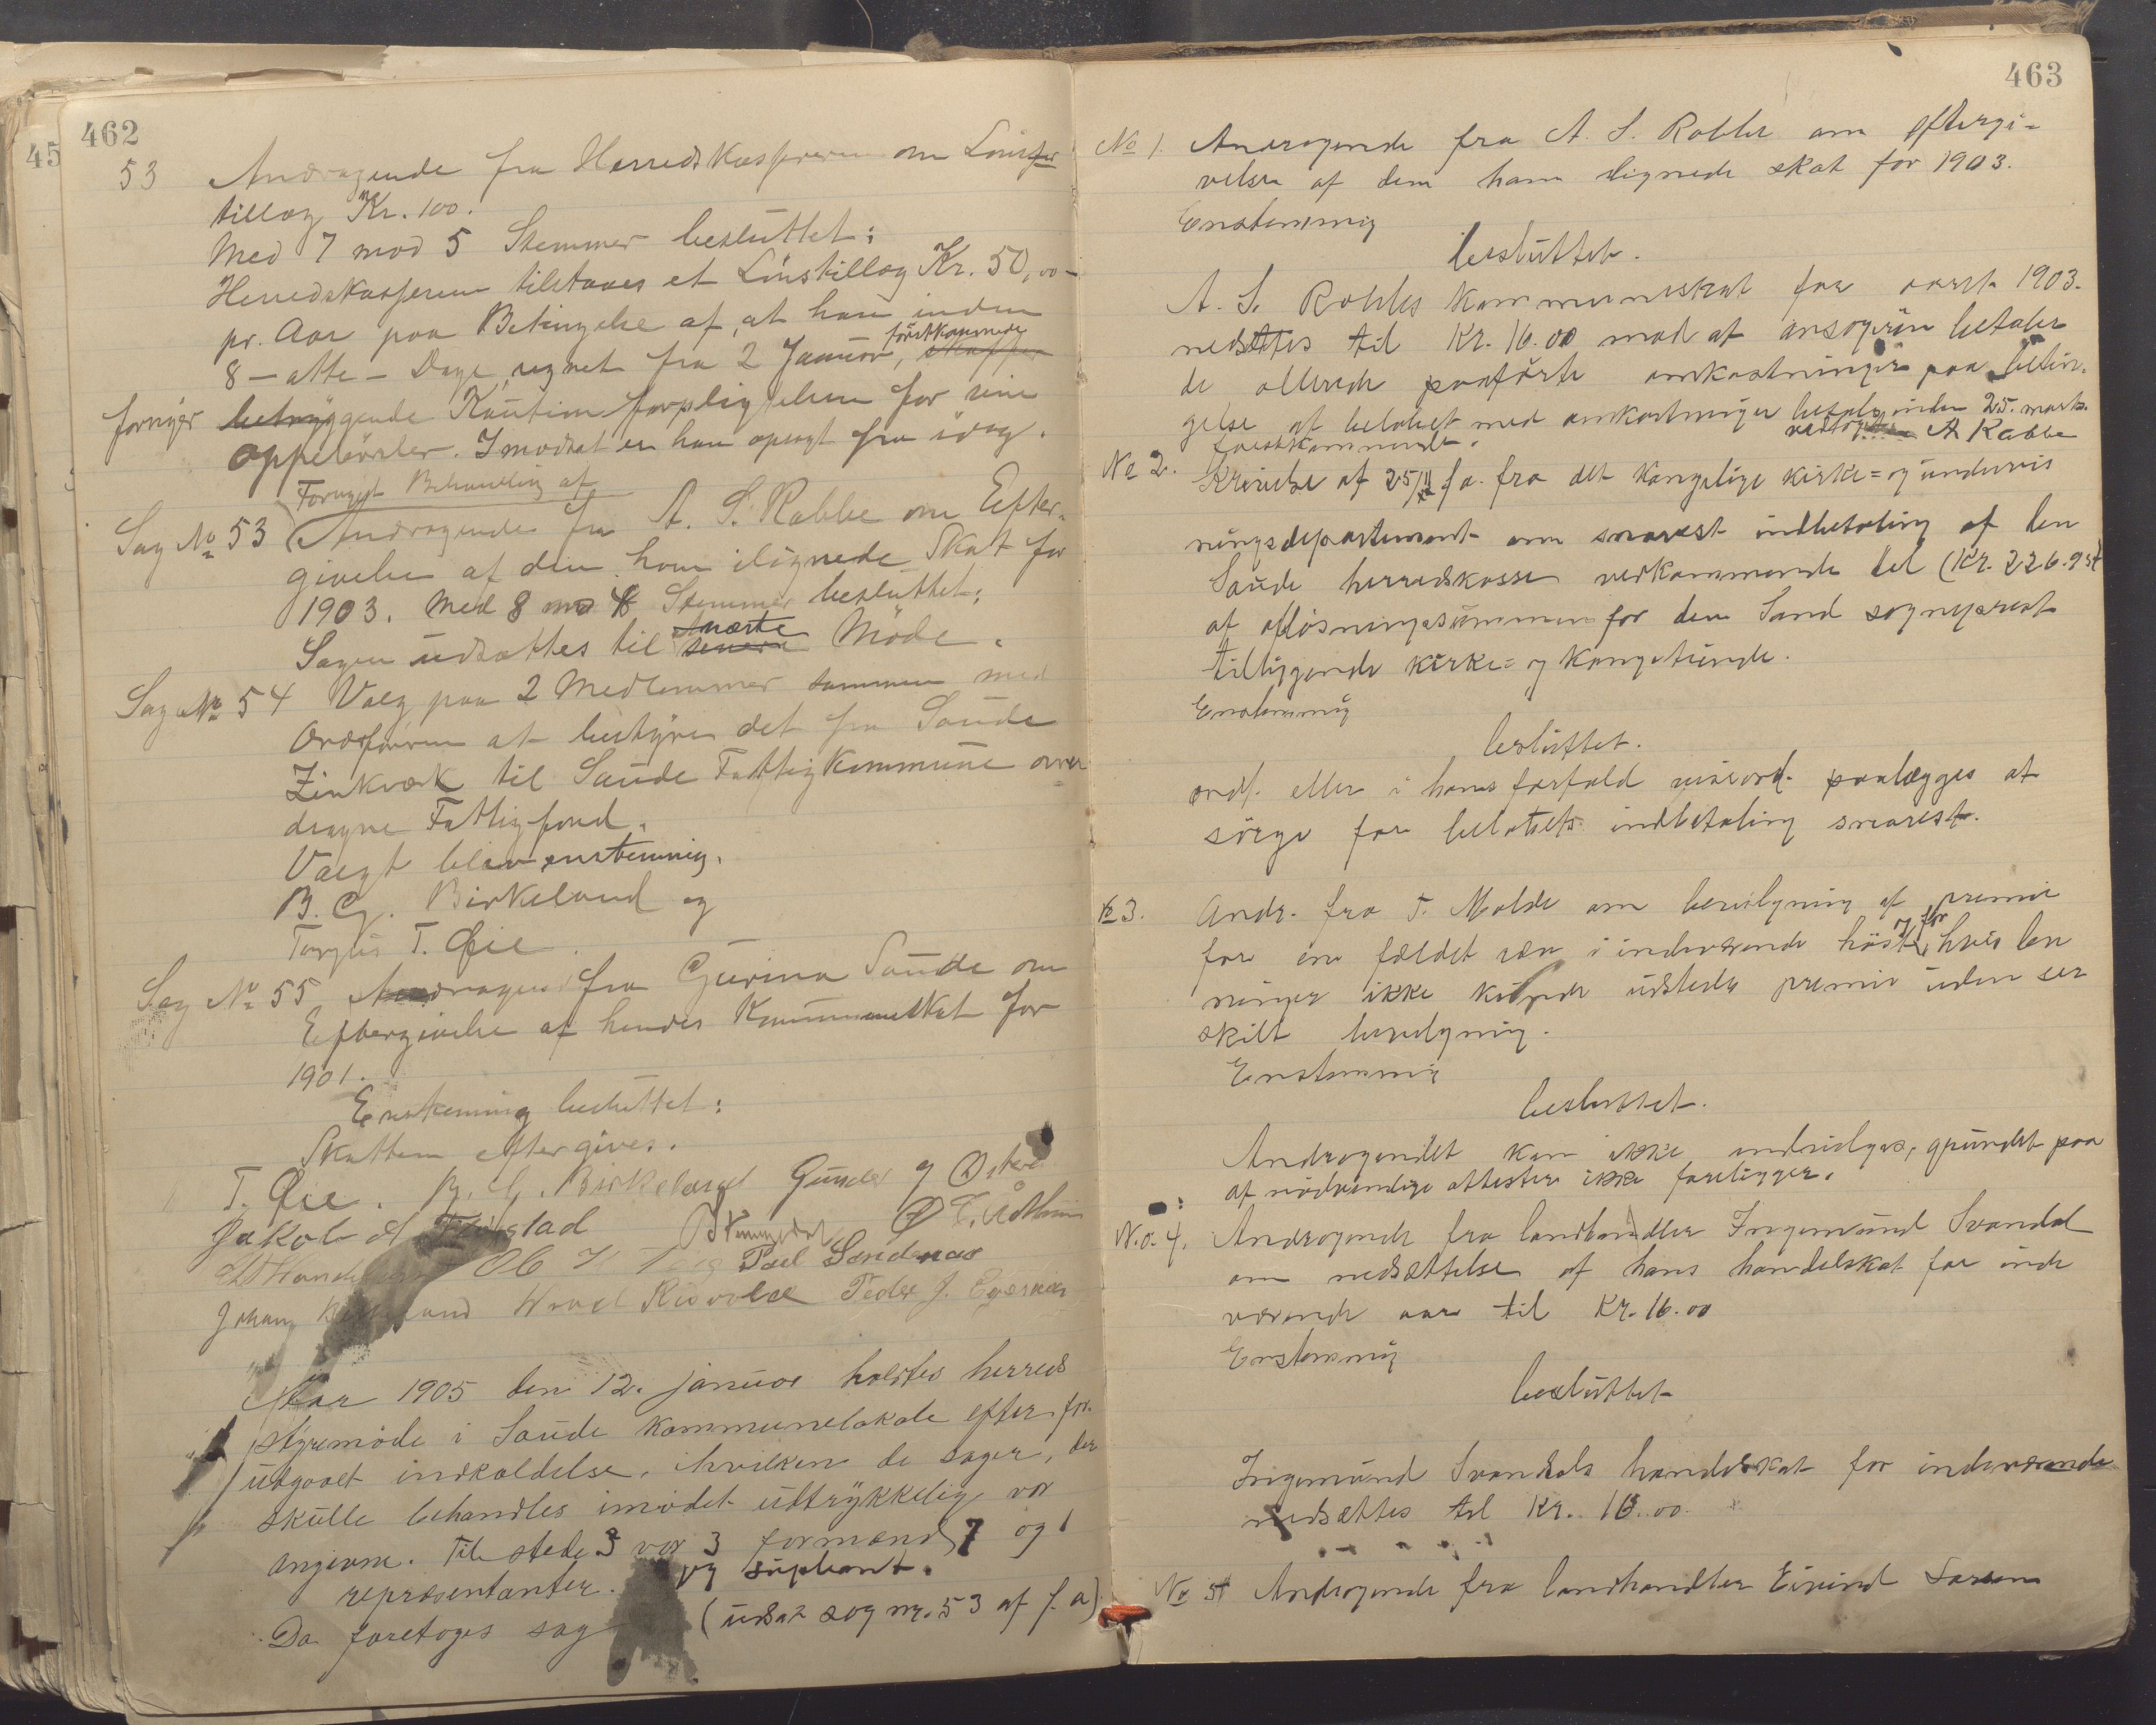 45
462
53 Andragende fra Herredskasseren om Löns
tillæg Kr. 100.
Med 7 mod 5 Stemmer besluttet:
Herredskasseren tilstaaes et Lönstillæg Kr. 50,00
pr. Aar paa Betingelse af, at han inden
förstkommende
8 – otte – Dage, regnet fra 2 Januar, skaffer
fornyer betryggende Kautionsforpligtelse for sine
Oppebörsler. I modsat er han opsagt fra idag.
Fornyet Behandling af
Sag No 53 Andragende fra A. S. Rabbe om Efter-
givelse af den ham ilignede Skat for
1903. Med 8 mod 4 Stemmer besluttet:
Sagen udsættes til senere næste Möde.
Sag No 54 Valg paa 2 Medlemmer sammen med
Ordföreren at bestyre det fra Saude
Zinkværk til Saude Fattigkommune over
dragne Fattigfond.
Valgt blev enstemmig.
B. G. Birkeland og
Torgius T. Øie.
Sag No 55 Andragende fra Gurina Saude om
Eftergivelse af hendes Kommuneskat for
1901.
Enstemmig besluttet:
Skatten eftergives.
T. Øie. B. G. Birkeland Gunder
Jakob
Poel Sandenaas
Johan Peder J.
Aar 1905 den 12. januar holdtes herreds
styremöde i Saude kommunelokale efter for-
udgaaet indkaldelse, hvilken de sager, der
skulle behandles i mödet udtrykkelig var
angivne. Til stede var 3 formænd 7 og 1
repræsentanter. og supleant.
Da foretoges sag (udsat sag nr. 53 af f. a)
463
No 1. Andragende fra A. S. Rabbe om eftergi-
velse af den ham lignede skat for 1903.
Enstemmig
besluttet.
A. S. Rabbes kommuneskat for aaret 1903
nedsættes til Kr. 16.00 mod at ansögeren betaler
de allerede paaförte omkostninger paa betin-
gelse at belöbet med omkostninger betales inden 25. marts
förstkommende. vedtaget A Rabbe
No 2. Skrivelse af 25/ f.a. fra det kongelige kirke= og undervis
ningsdepartement om snarest indbetaling af den
Saude herredskasse vedkommende del (Kr. 226.95)
af aflösningssummen for den Sand sogneprest
tilliggende kirke= og kongetiende.
Enstemmig
besluttet.
ordf. eller i hans forfald viseord. paalægges at
sörge for belöbets indbetaling snarest.
No 3. Andr. fra T. Molde om bevilgning af premie
for en fældet ræv i indeværende höst, og for hvis len
ninger ikke udstede premie uden ser
skilt bevilgning.
Enstemmig
besluttet.
Andragendet kan ikke indvilges, grundet paa
at nödvendige attester ikke foreligger.
No. 4. Andragende fra landhandler Ingemund Svandal
om nedsættelse af hans handelskat for inde
værende aar til Kr. 16.00
Enstemmig
besluttet
Ingemund Svandals handelskat for indeværende
nedsættes til Kr. 16.00.
No 5 Andragende fra landhandler Eivind Larsen